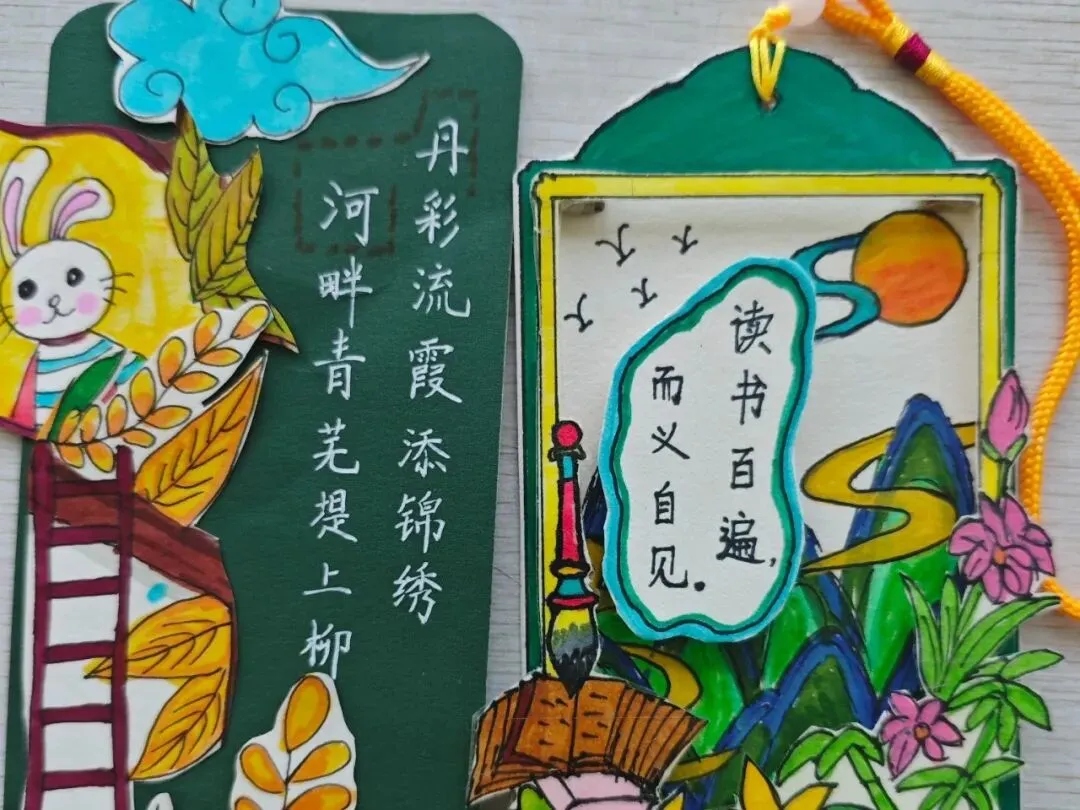 丹彩流霞添锦绣
河畔青芜堤上柳
读书百遍,
而义自见.